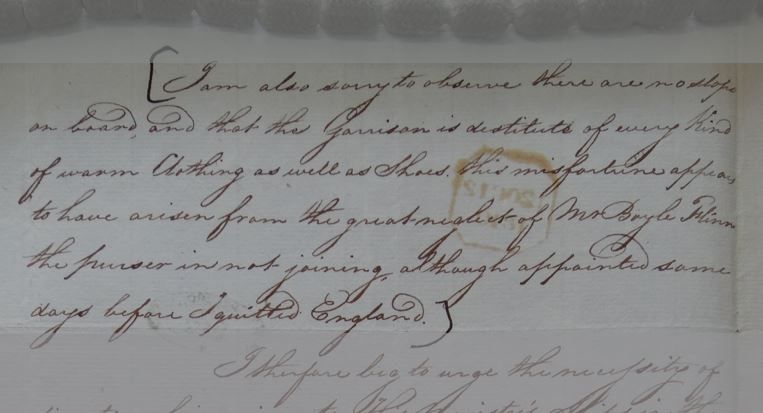 I am also sorry to observe there are no slops
on board, and that the Garrison is destitute of every kind
of warm Clothing as well as Shoes. this misfortune appears
to have arisen from the great neglect of Mr Doyle Flinn
the purser in not joining, although appointed some
days before I quitted England.
I therefore beg to urge the necessity of